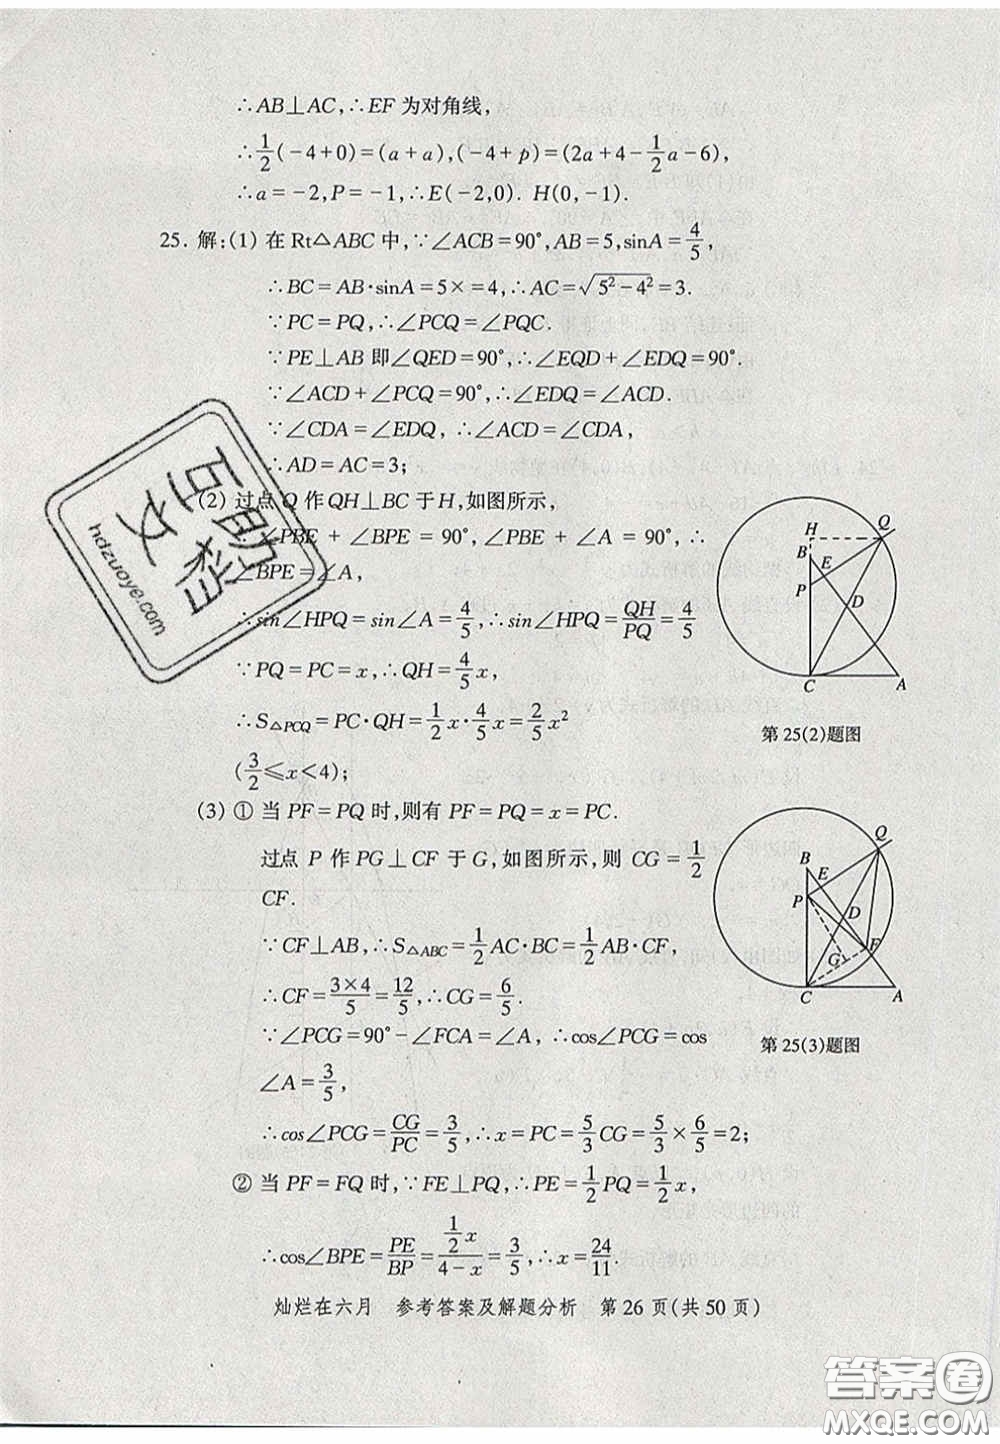 ∴AB⊥AC,∴EF 为对角线,
∴1/2(-4+0)=(a+a),(-4+p)=(2a+4-1/2a-6),
∴a=-2,P=-1,∴E(-2,0). H(0,-1).
25. 解:(1) 在 Rt△ABC 中,∵∠ACB=90°,AB=5,sinA=4/5,
∴BC=AB·sinA=5×=4,∴AC=√(5²-4²)=3.
∵PC=PQ,∴∠PCQ=∠PQC.
∵PE⊥AB 即∠QED=90°,∴∠EQD+∠EDQ=90°.
∵∠ACD+∠PCQ=90°,∴∠EDQ=∠ACD.
∵∠CDA=∠EDQ, ∴∠ACD=∠CDA,
∴AD=AC=3;
(2) 过点 Q 作 QH⊥BC 于 H,如图所示,
∠PBE+∠BPE=90°,∠PBE+∠A=90°,∴
∠BPE=∠A,
∴sin∠HPQ=sin∠A=4/5,∴sin∠HPQ=QH/PQ=4/5
∵PQ=PC=x,∴QH=4/5x,
∴S△PCQ=PC·QH=1/2x·4/5x=2/5x²
(3/2≤x<4);
H
Q
B
E
P
D
C
A
第 25(2)题图
(3) ① 当 PF=PQ 时,则有 PF=PQ=x=PC.
过点 P 作 PG⊥CF 于 G,如图所示,则 CG=1/2
CF.
∵CF⊥AB,∴S△ABC=1/2AC·BC=1/2AB·CF,
∴CF=3×4/5=12/5,∴CG=6/5.
∵∠PCG=90°-∠FCA=∠A, ∴cos∠PCG=cos
∠A=3/5,
∴cos∠PCG=CG/PC=3/5,∴x=PC=5/3CG=5/3×6/5=2;
Q
B
E
P
D
F
G
C
A
第 25(3)题图
② 当 PF=FQ 时,∵FE⊥PQ,∴PE=1/2PQ=1/2x,
∴cos∠BPE=PE/BP=1/2x/4-x=3/5,∴x=24/11.
灿烂在六月 参考答案及解题分析 第 26 页(共 50 页)
互助文档
hdzuoye.com
答案圈
MXQE.COM